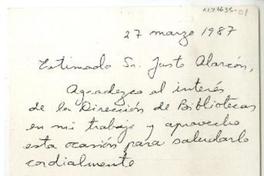 27 marzo 1987
Estimado Sr. Justo Alarcón,
Agradezco al interés
de la Dirección de Bibliotecas
en mi trabajo y aprovecho
esta ocasión para saludarlo
cordialmente